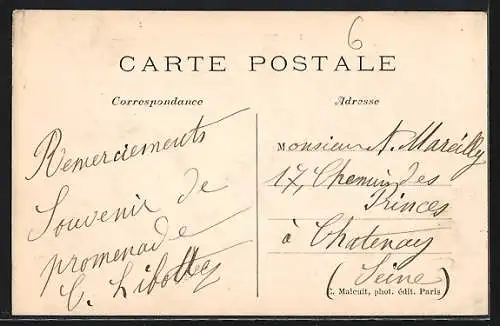 6
CARTE POSTALE
Correspondance
Adresse
Remerciements
Souvenir de
promenade
Monsieur A. Mareilly
17, Chemin des
Princes
à Chatenay
(Seine)
C. Malcuit, phot. édit. Paris